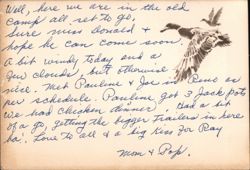 Well, here we are in the old
camp all set to go.
Sure miss Donald &
hope he can come soon.
A bit windy today and a
few clouds, but otherwise
nice. Met Pauline & Joe in Reno as
per schedule. Pauline got 3 Jack pots
we had chicken dinner. Had a bit
of a go, getting the bigger trailers in here
ha. Love to all & a big kiss for Ray
Mom & Pop.